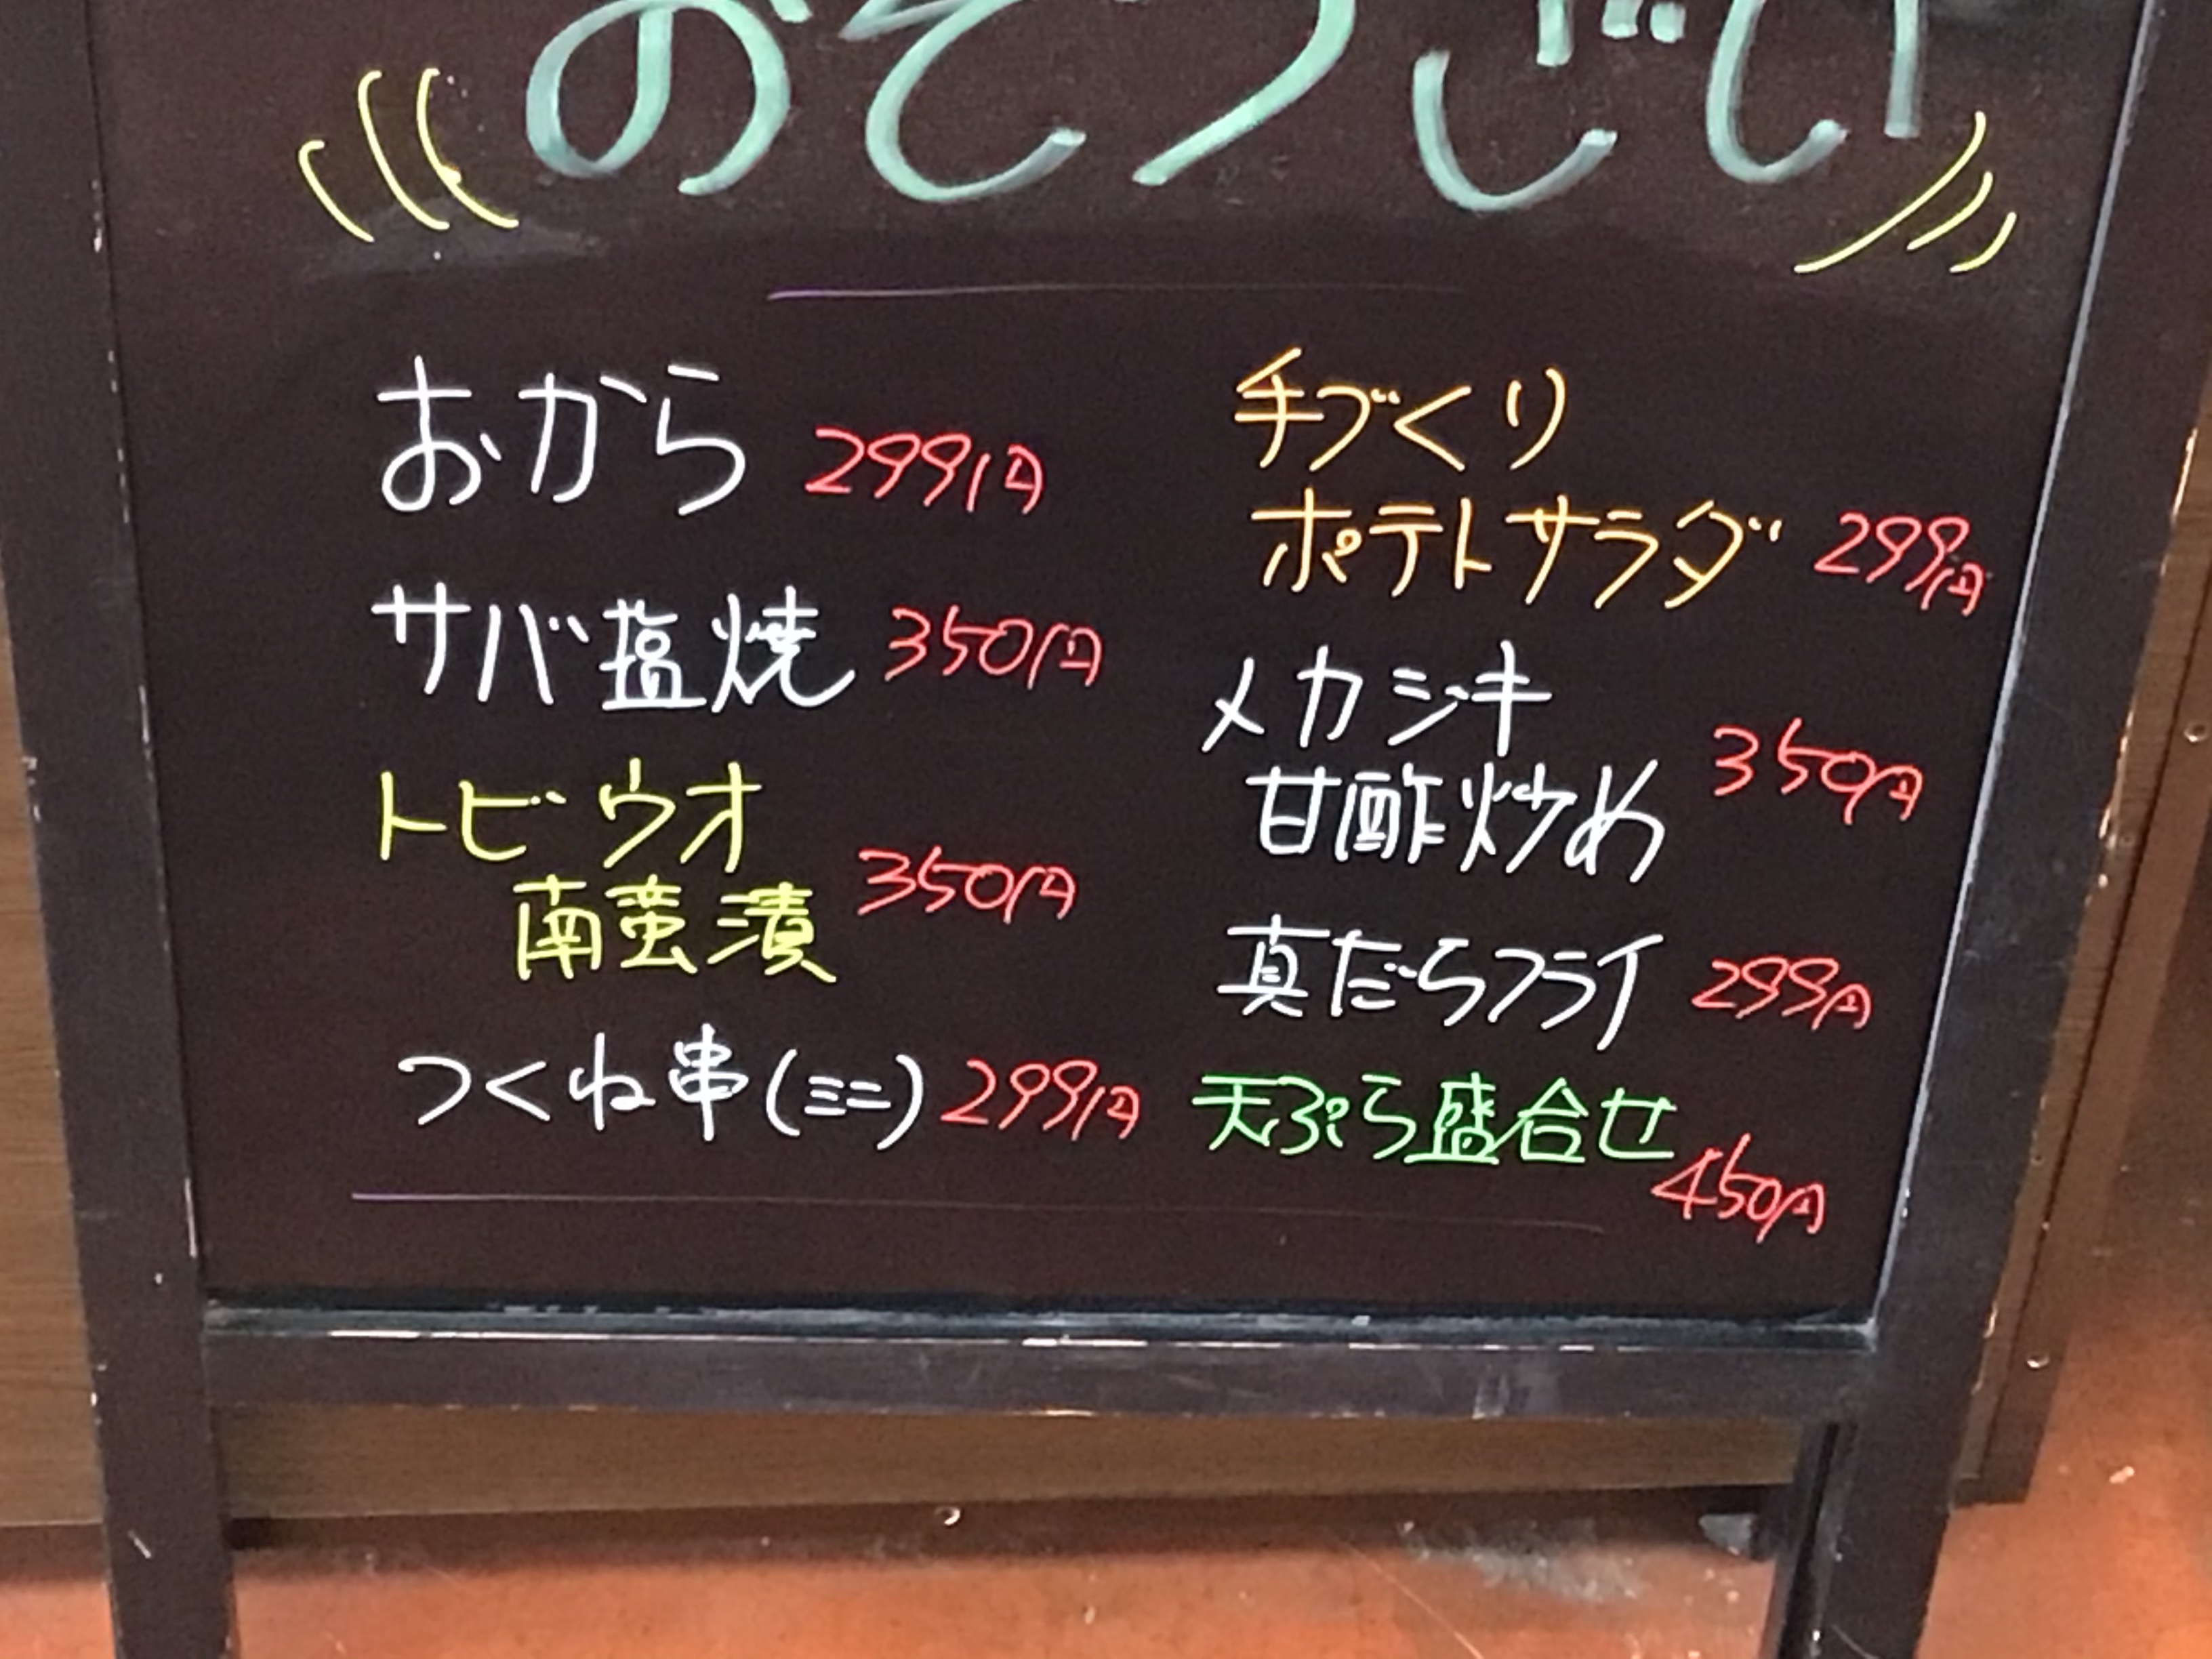 おそうざい
おから 299円
サバ塩焼 350円
トビウオ
南蛮漬 350円
つくね串(ミニ) 299円
手づくり
ポテトサラダ 299円
メカジキ
甘酢炒め 350円
真だらフライ 299円
天ぷら盛合せ
450円